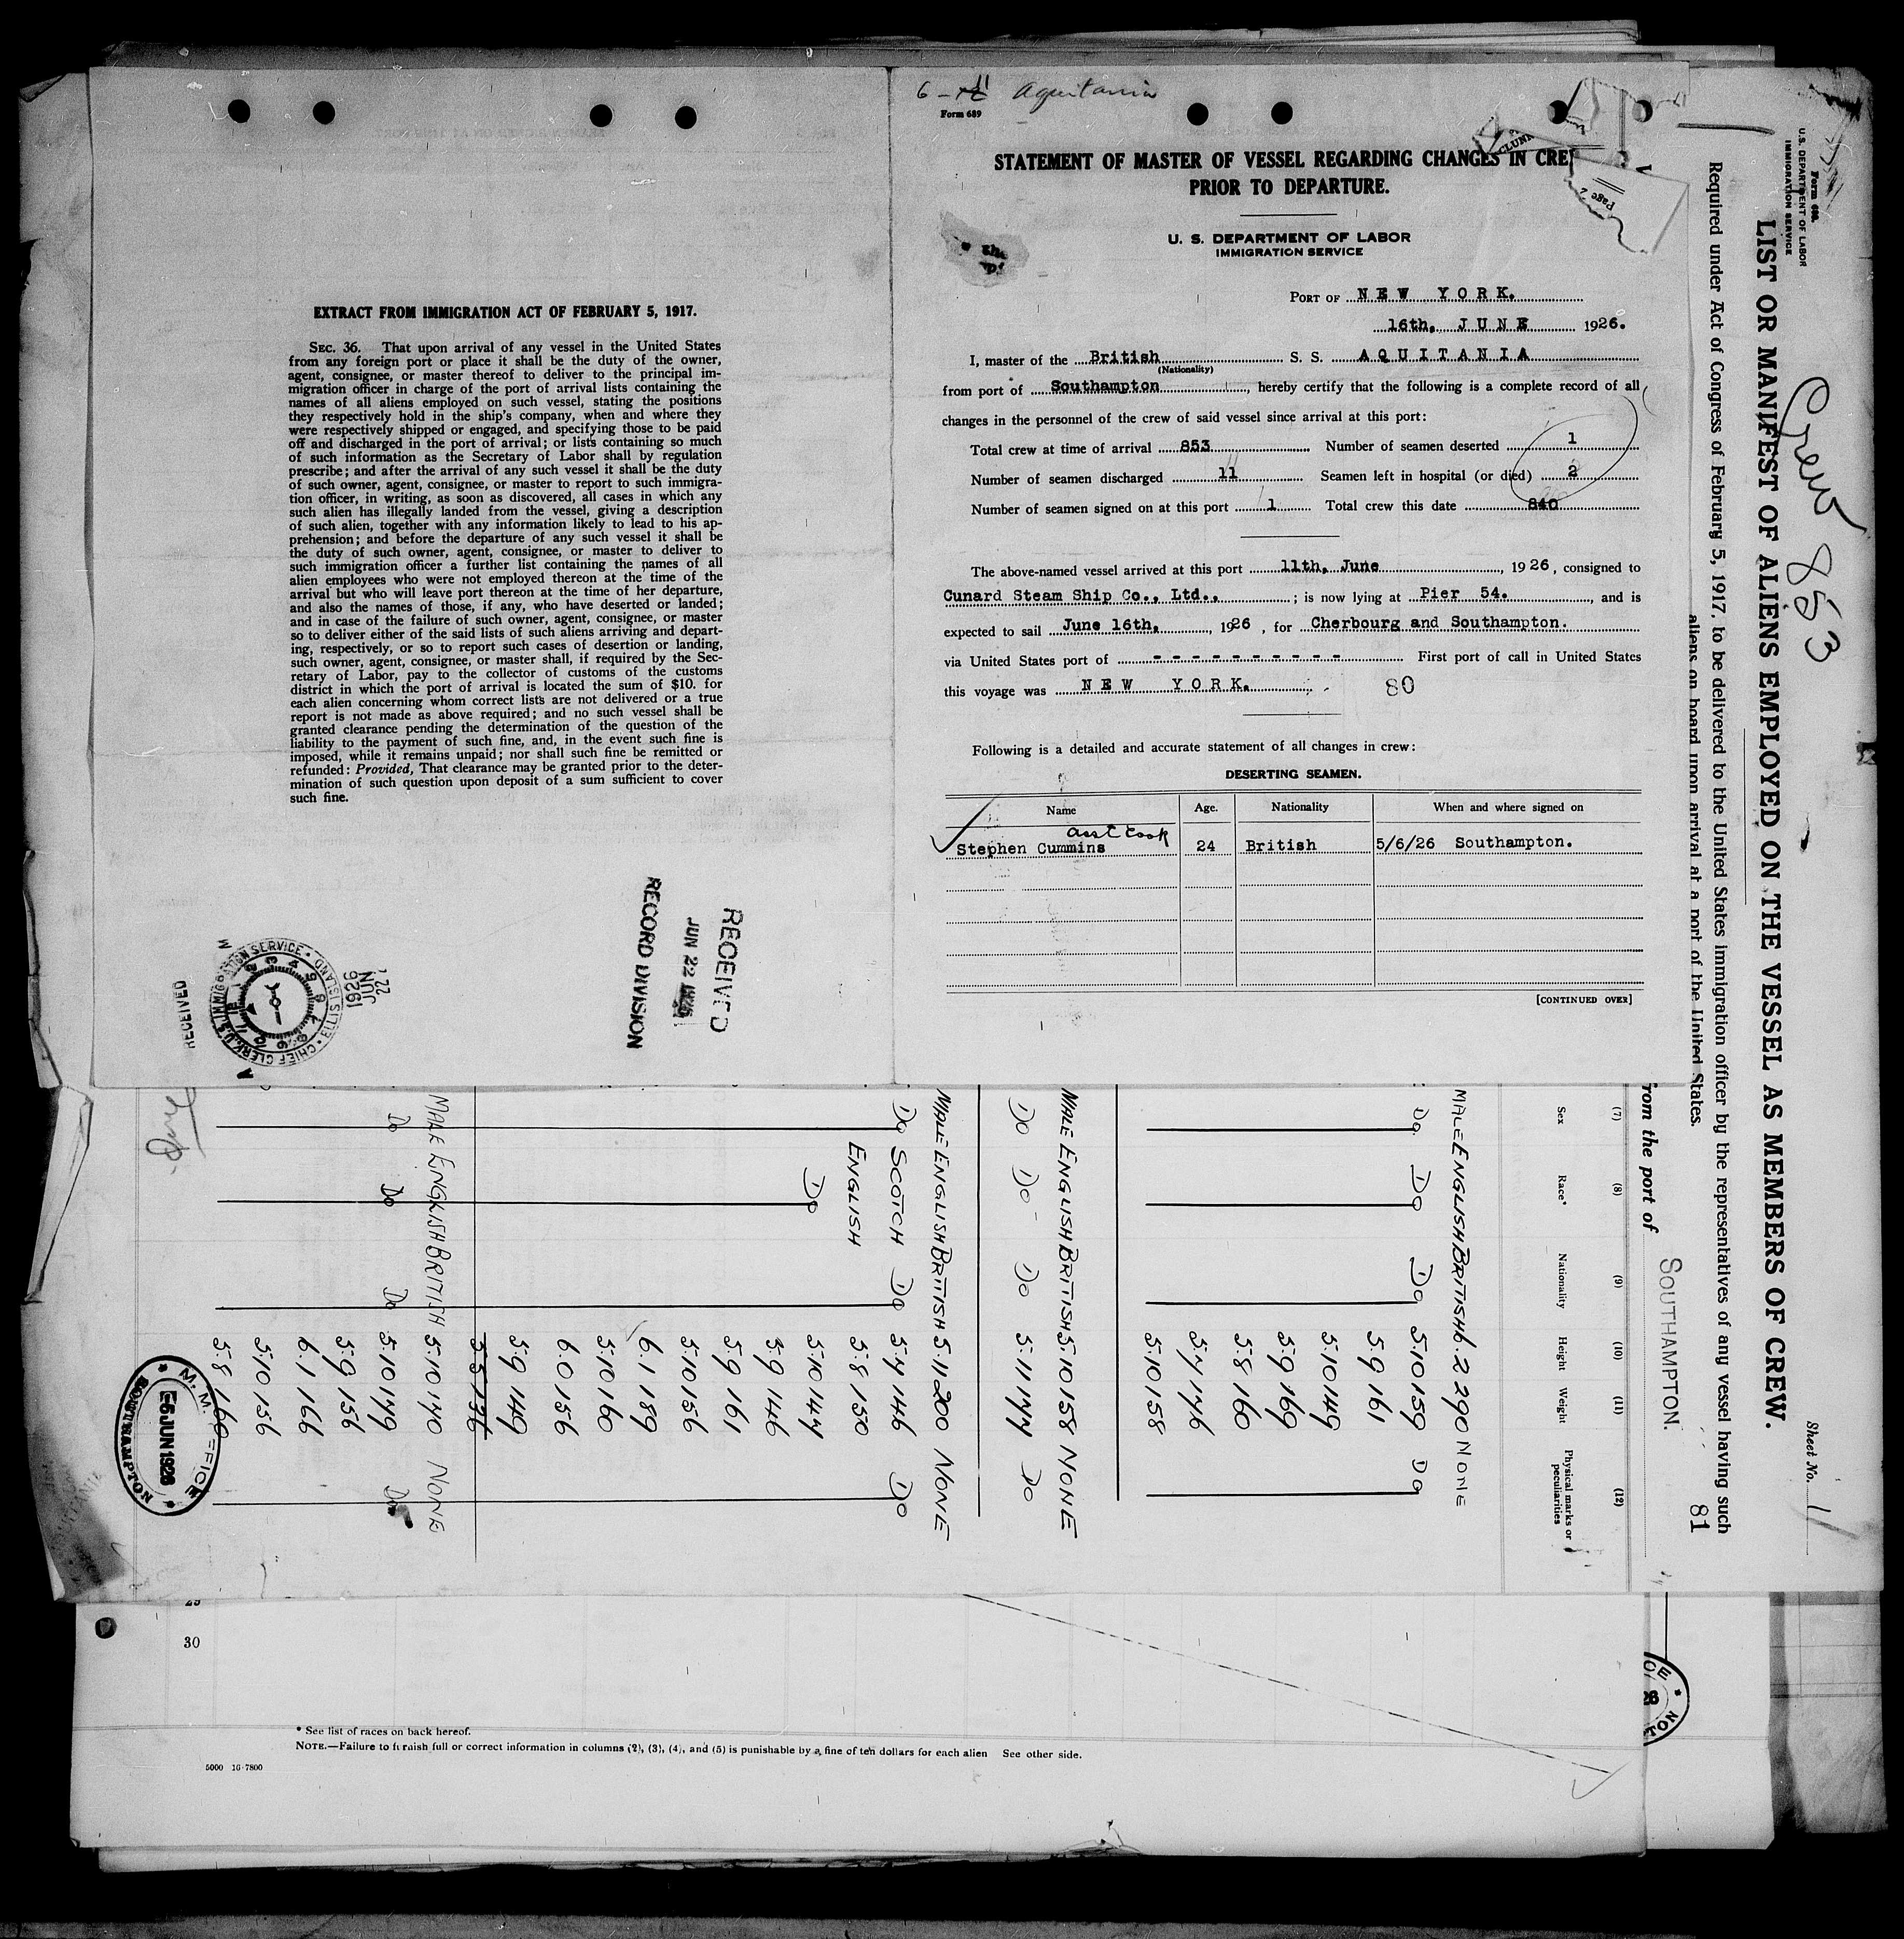 EXTRACT FROM IMMIGRATION ACT OF FEBRUARY 5, 1917.
SEC. 36. That upon arrival of any vessel in the United States
from any foreign port or place it shall be the duty of the owner,
agent, consignee, or master thereof to deliver to the principal im-
migration officer in charge of the port of arrival lists containing the
names of all aliens employed on such vessel, stating the positions
they respectively hold in the ship's company, when and where they
were respectively shipped or engaged, and specifying those to be paid
off and discharged in the port of arrival; or lists containing so much
of such information as the Secretary of Labor shall by regulation
prescribe; and after the arrival of any such vessel it shall be the duty
of such owner, agent, consignee, or master to report to such immigra-
tion officer, in writing, as soon as discovered, all cases in which any
such alien has illegally landed from the vessel, giving a description
of such alien, together with any information likely to lead to his ap-
prehension; and before the departure of any such vessel it shall be
the duty of such owner, agent, consignee, or master to deliver to
such immigration officer a further list containing the names of all
alien employees who were not employed thereon at the time of the
arrival but who will leave port thereon at the time of her departure,
and also the names of those, if any, who have deserted or landed;
and in case of the failure of such owner, agent, consignee, or master
so to deliver either of the said lists of such aliens arriving and depart-
ing, respectively, or so to report such cases of desertion or landing,
such owner, agent, consignee, or master shall, if required by the Sec-
retary of Labor, pay to the collector of customs of the customs
district in which the port of arrival is located the sum of $10. for
each alien concerning whom correct lists are not delivered or a true
report is not made as above required; and no such vessel shall be
granted clearance pending the determination of the question of the
liability to the payment of such fine, and, in the event such fine is
imposed, while it remains unpaid; nor shall such fine be remitted or
refunded: Provided, That clearance may be granted prior to the deter-
mination of such question upon deposit of a sum sufficient to cover
such fine.
RECEIVED
CHIEF CLERK U.S. IMMIGRATION SERVICE ELLIS ISLAND
1926
JUN
22
RECEIVED
JUN 22 1926
RECORD DIVISION
Aquitania
Form 689
STATEMENT OF MASTER OF VESSEL REGARDING CHANGES IN CREW
PRIOR TO DEPARTURE.
Page 2
U. S. DEPARTMENT OF LABOR
IMMIGRATION SERVICE
PORT OF NEW YORK.
16th, JUNE 1926.
I, master of the British S. S. AQUITANIA
(Nationality)
from port of Southampton, hereby certify that the following is a complete record of all
changes in the personnel of the crew of said vessel since arrival at this port:
Total crew at time of arrival 853 Number of seamen deserted 1
Number of seamen discharged 11 Seamen left in hospital (or died) 2
Number of seamen signed on at this port 1 Total crew this date 840
The above-named vessel arrived at this port 11th, June, 1926, consigned to
Cunard Steam Ship Co., Ltd., ; is now lying at Pier 54., and is
expected to sail June 16th, 1926, for Cherbourg and Southampton.
via United States port of - - - - - - - - - - First port of call in United States
this voyage was NEW YORK. 80
Following is a detailed and accurate statement of all changes in crew:
DESERTING SEAMEN.
Name Age. Nationality When and where signed on
asst cook
Stephen Cummins 24 British 5/6/26 Southampton.
[CONTINUED OVER]
Form 688.
U. S. DEPARTMENT OF LABOR
IMMIGRATION SERVICE
Crew 853
Sheet No. 1
LIST OR MANIFEST OF ALIENS EMPLOYED ON THE VESSEL AS MEMBERS OF CREW.
Required under Act of Congress of February 5, 1917, to be delivered to the United States immigration officer by the representatives of any vessel having such
aliens on board upon arrival at a port of the United States.
81
from the port of SOUTHAMPTON.
(7) (8) (9) (10) (11) (12)
Sex Race* Nationality Height Weight Physical marks or peculiarities
MALE ENGLISH BRITISH 6.2 290 NONE
Do Do Do 5.10 159 Do
5.9 161
5.10 149
5.9 169
5.8 160
5.7 176
5.10 158
MALE ENGLISH BRITISH 5.10 158 NONE
Do Do Do 5.11 174 Do
MALE ENGLISH BRITISH 5.11 200 NONE
Do SCOTCH Do 5.4 146 Do
ENGLISH 5.8 150
Do 5.10 144
5.9 146
5.9 161
5.10 156
6.1 189
5.10 160
6.0 156
5.9 140
5.5 136
MALE ENGLISH BRITISH 5.10 140 NONE
Do Do Do 5.10 149 Do
5.9 156
6.1 166
5.10 156
5.8 160
M. M. OFFICE
5 JUN 1926
SOUTHAMPTON
29
30
* See list of races on back hereof.
NOTE.—Failure to furnish full or correct information in columns (2), (3), (4), and (5) is punishable by a fine of ten dollars for each alien See other side.
5000 16-7800